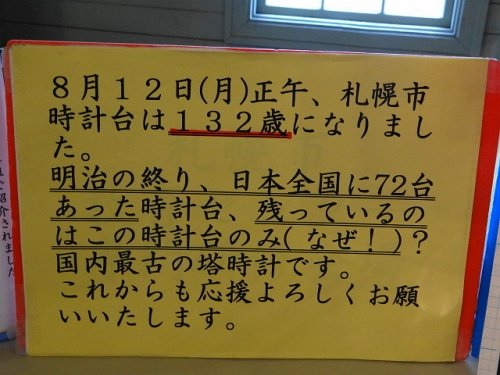 8月12日(月)正午、札幌市
時計台は132歳になりまし
た。
明治の終り、日本全国に72台
あった時計台、残っているの
はこの時計台のみ(なぜ!)?
国内最古の塔時計です。
これからも応援よろしくお願
いいたします。
で紹介されました